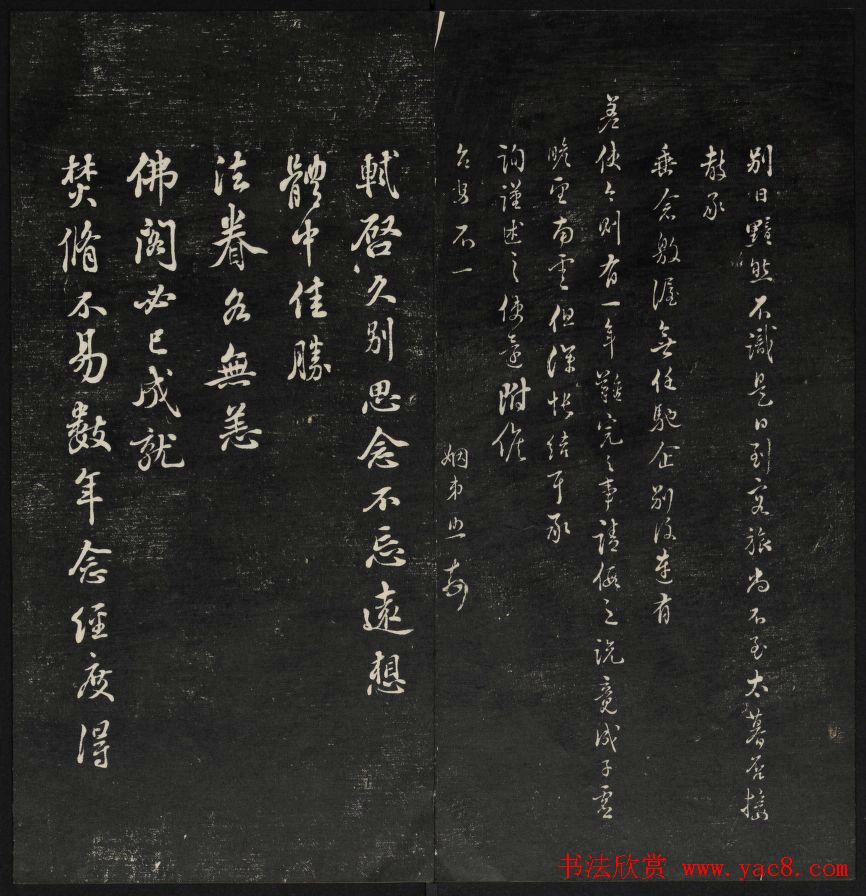 別日黯然不識是日到家旅尚不至太暮否
教承
垂念敷渥無任馳企別後連有
差使今則有一年難完之事請假之說竟成子虛
瞻望南雲但深悵結耳承
詢謹述之使還附候
台安不一
姻弟
軾啓久別思念不忘遠想
體中佳勝
法眷各無恙
佛閣必已成就
焚脩不易數年念經度得
书法欣赏 www.yac8.com